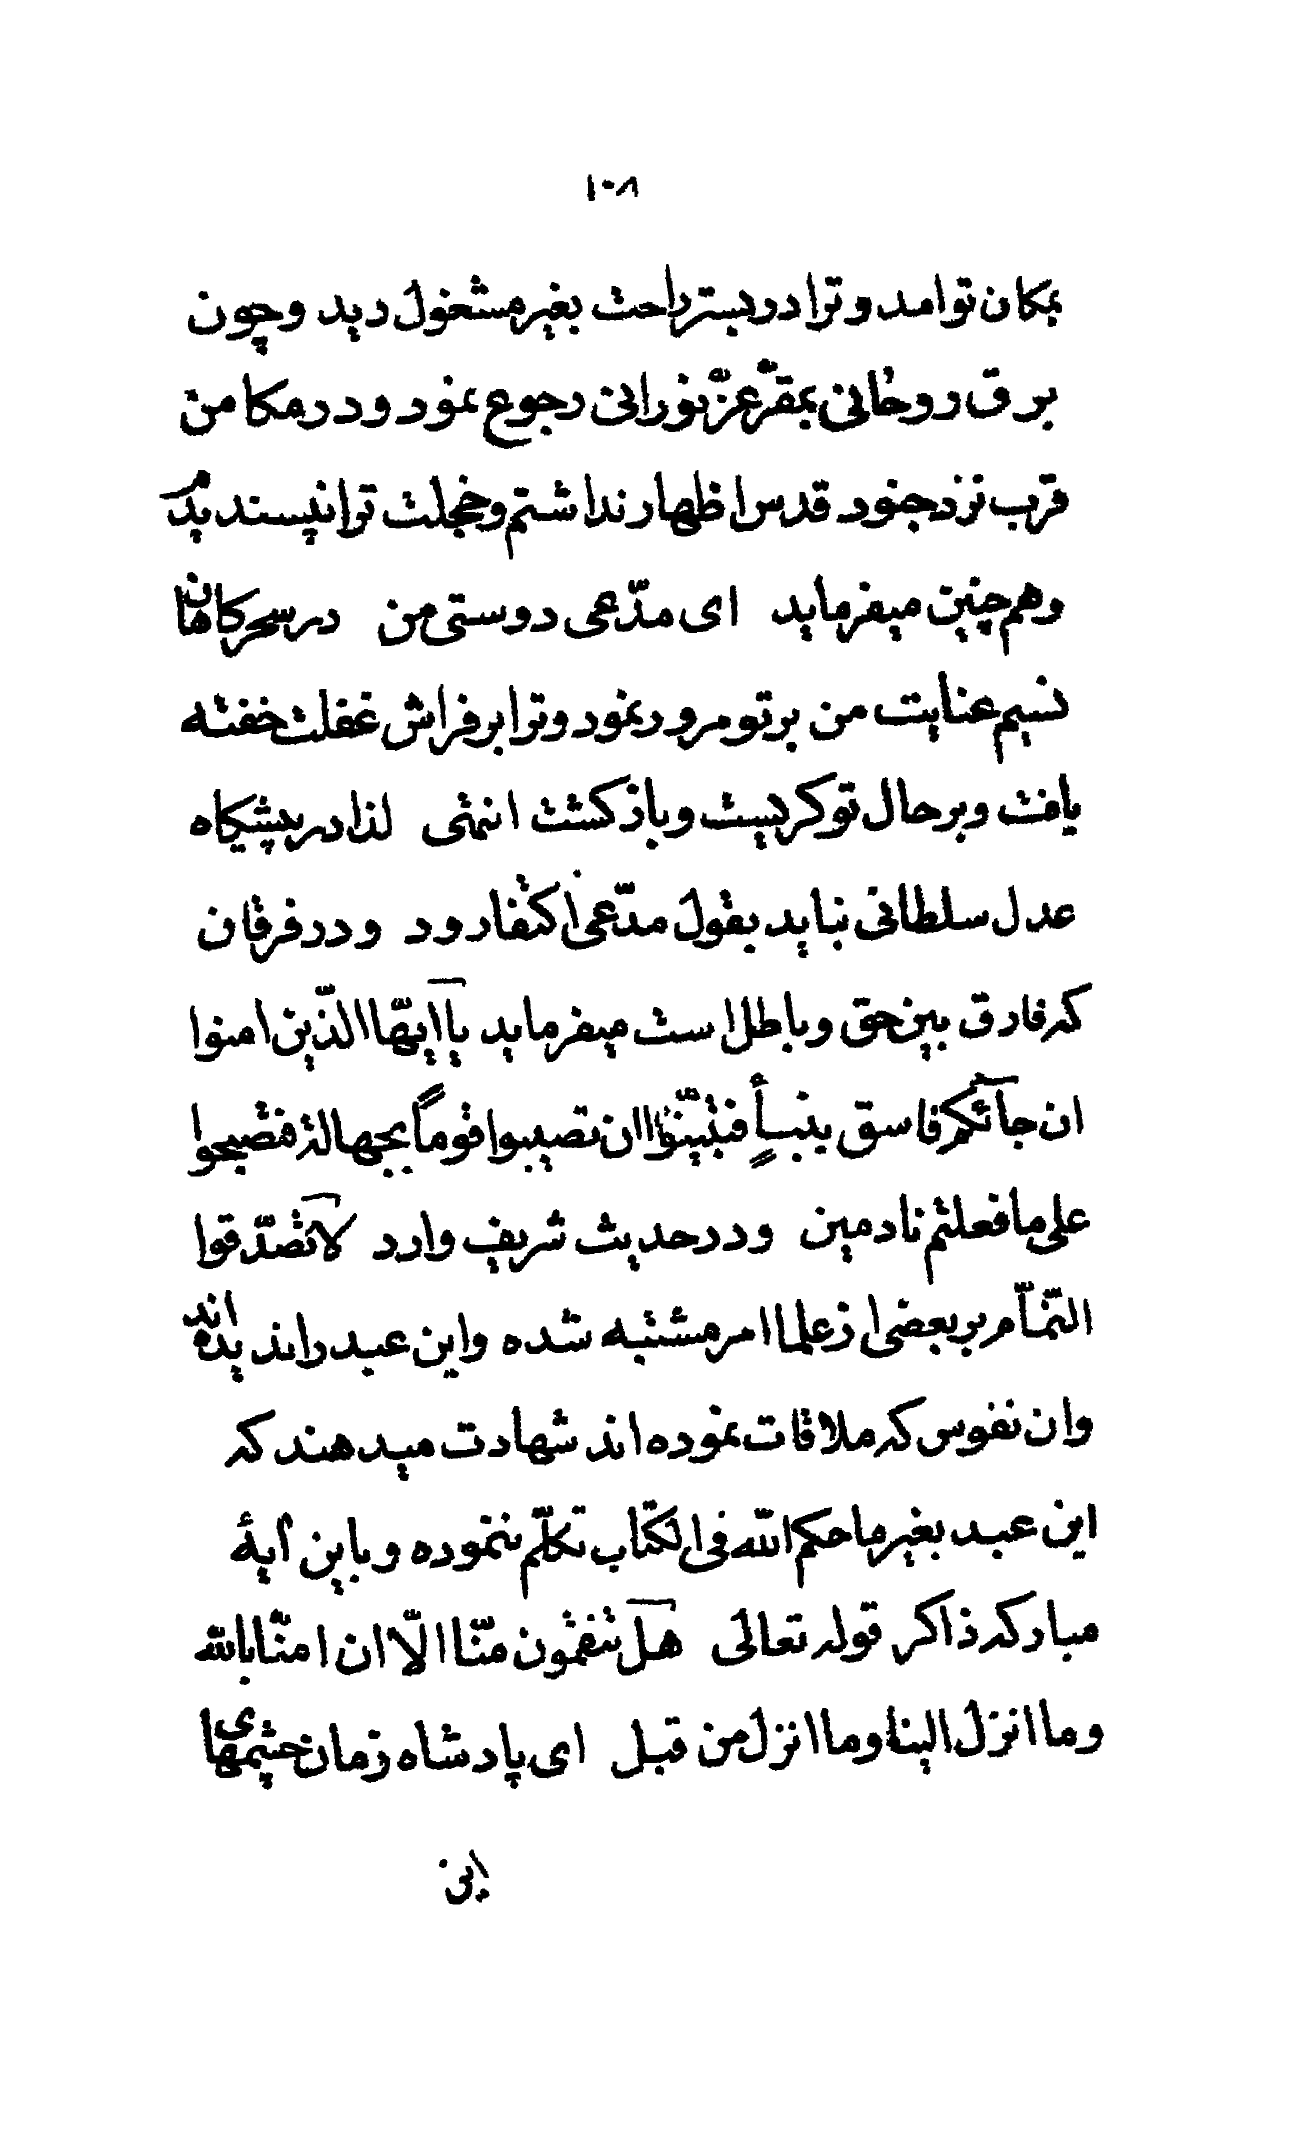 ۱۰۸
بمکان تو امد و ترا در بستر راحت بغیر مشغول دید و چون
برق روحانی بمقرّ عزّ نورانی رجوع نمود و در مکامن
قرب نزد جنود قدس اظهار نداشتم و خجلت ترا نپسندیدم
و هم چنین میفرماید ای مدّعی دوستی من در سحرکاهان
نسیم عنایت من بر تو مرور نمود و ترا بر فراش غفلت خفته
یافت و بر حال تو کریست و باز کشت انتهی لذا در پیشکاه
عدل سلطانی نباید بقول مدّعی اکتفا رود و در فرقان
که فارق بین حق و باطل است میفرماید یا ایّها الّذین امنوا
ان جآئکم فاسق بنبأٍ فتبیّنوا ان تصیبوا قوماً بجهالة فتصبحوا
علی ما فعلتم نادمین و در حدیث شریف وارد لا تصدّقوا
النّمّام بر بعضی از علما امر مشتبه شده و این عبد را ندیده اند
و ان نفوس که ملاقات نموده اند شهادت میدهند که
این عبد بغیر ما حکم الله فی الکتاب تکلّم ننموده و باین آیهٔ
مبارکه ذاکر قوله تعالی هل تنقمون منّا الّا ان امنّا بالله
و ما انزل الینا و ما انزل من قبل ای پادشاه زمان چشمهای
این